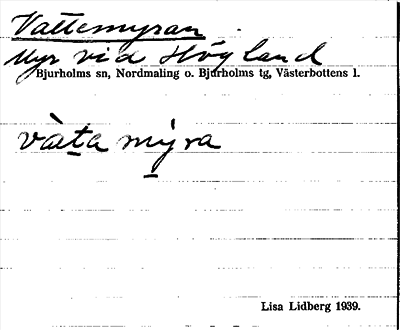 Vattemyran.
Myr vid Högland
Bjurholms sn, Nordmaling o. Bjurholms tg, Västerbottens l.
vàta mýra
Lisa Lidberg 1939.